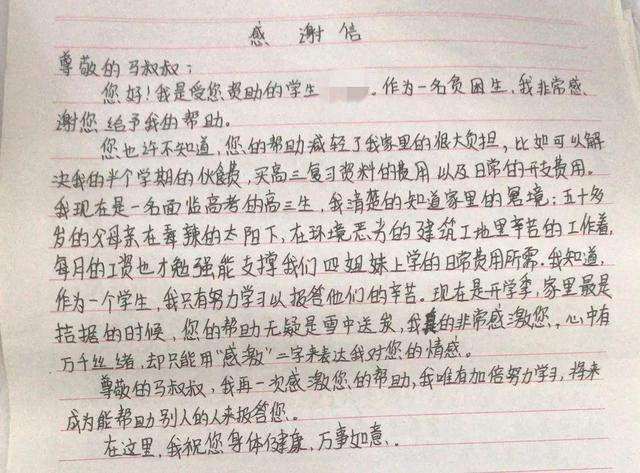 感谢信
尊敬的马叔叔：
您好！我是受您资助的学生 。作为一名贫困生，我非常感
谢您给予我的帮助。
您也许不知道，您的帮助减轻了我家里的很大负担，比如可以解
决我的半个学期的伙食费，买高三复习资料的费用以及日常的开支费用。
我现在是一名面临高考的高三生，我清楚的知道家里的窘境；五十多
岁的父母亲在毒辣的太阳下，在环境恶劣的建筑工地里辛苦的工作着，
每月的工资也才勉强能支撑我们四姐妹上学的日常费用所需。我知道，
作为一个学生，我只有努力学习以报答他们的辛苦。现在是开学季，家里最是
拮据的时候，您的帮助无疑是雪中送炭，我真的非常感激您。心中有
万千丝绪，却只能用“感激”二字来表达我对您的情感。
尊敬的马叔叔，我再一次感激您的帮助，我唯有加倍努力学习，将来
成为能帮助别人的人来报答您。
在这里，我祝您身体健康，万事如意。